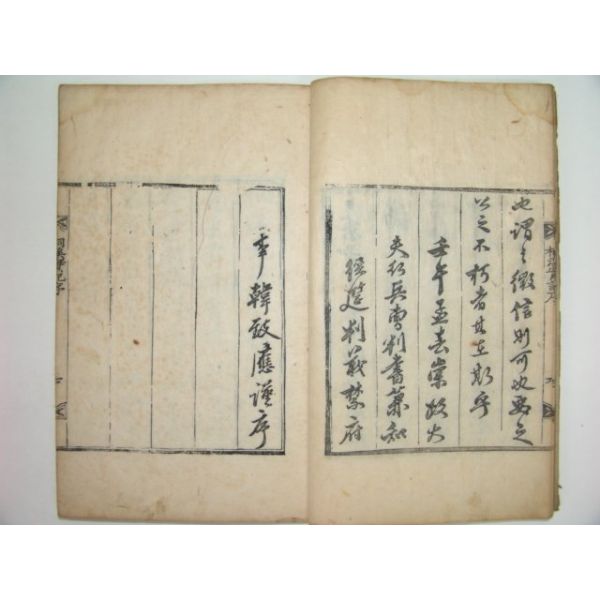 也謂之徵信則可也與之
以之不朽者其在斯乎
壬午孟春崇政大
夫行兵曹判書兼知
經筵判義禁府
事韓致應謹序